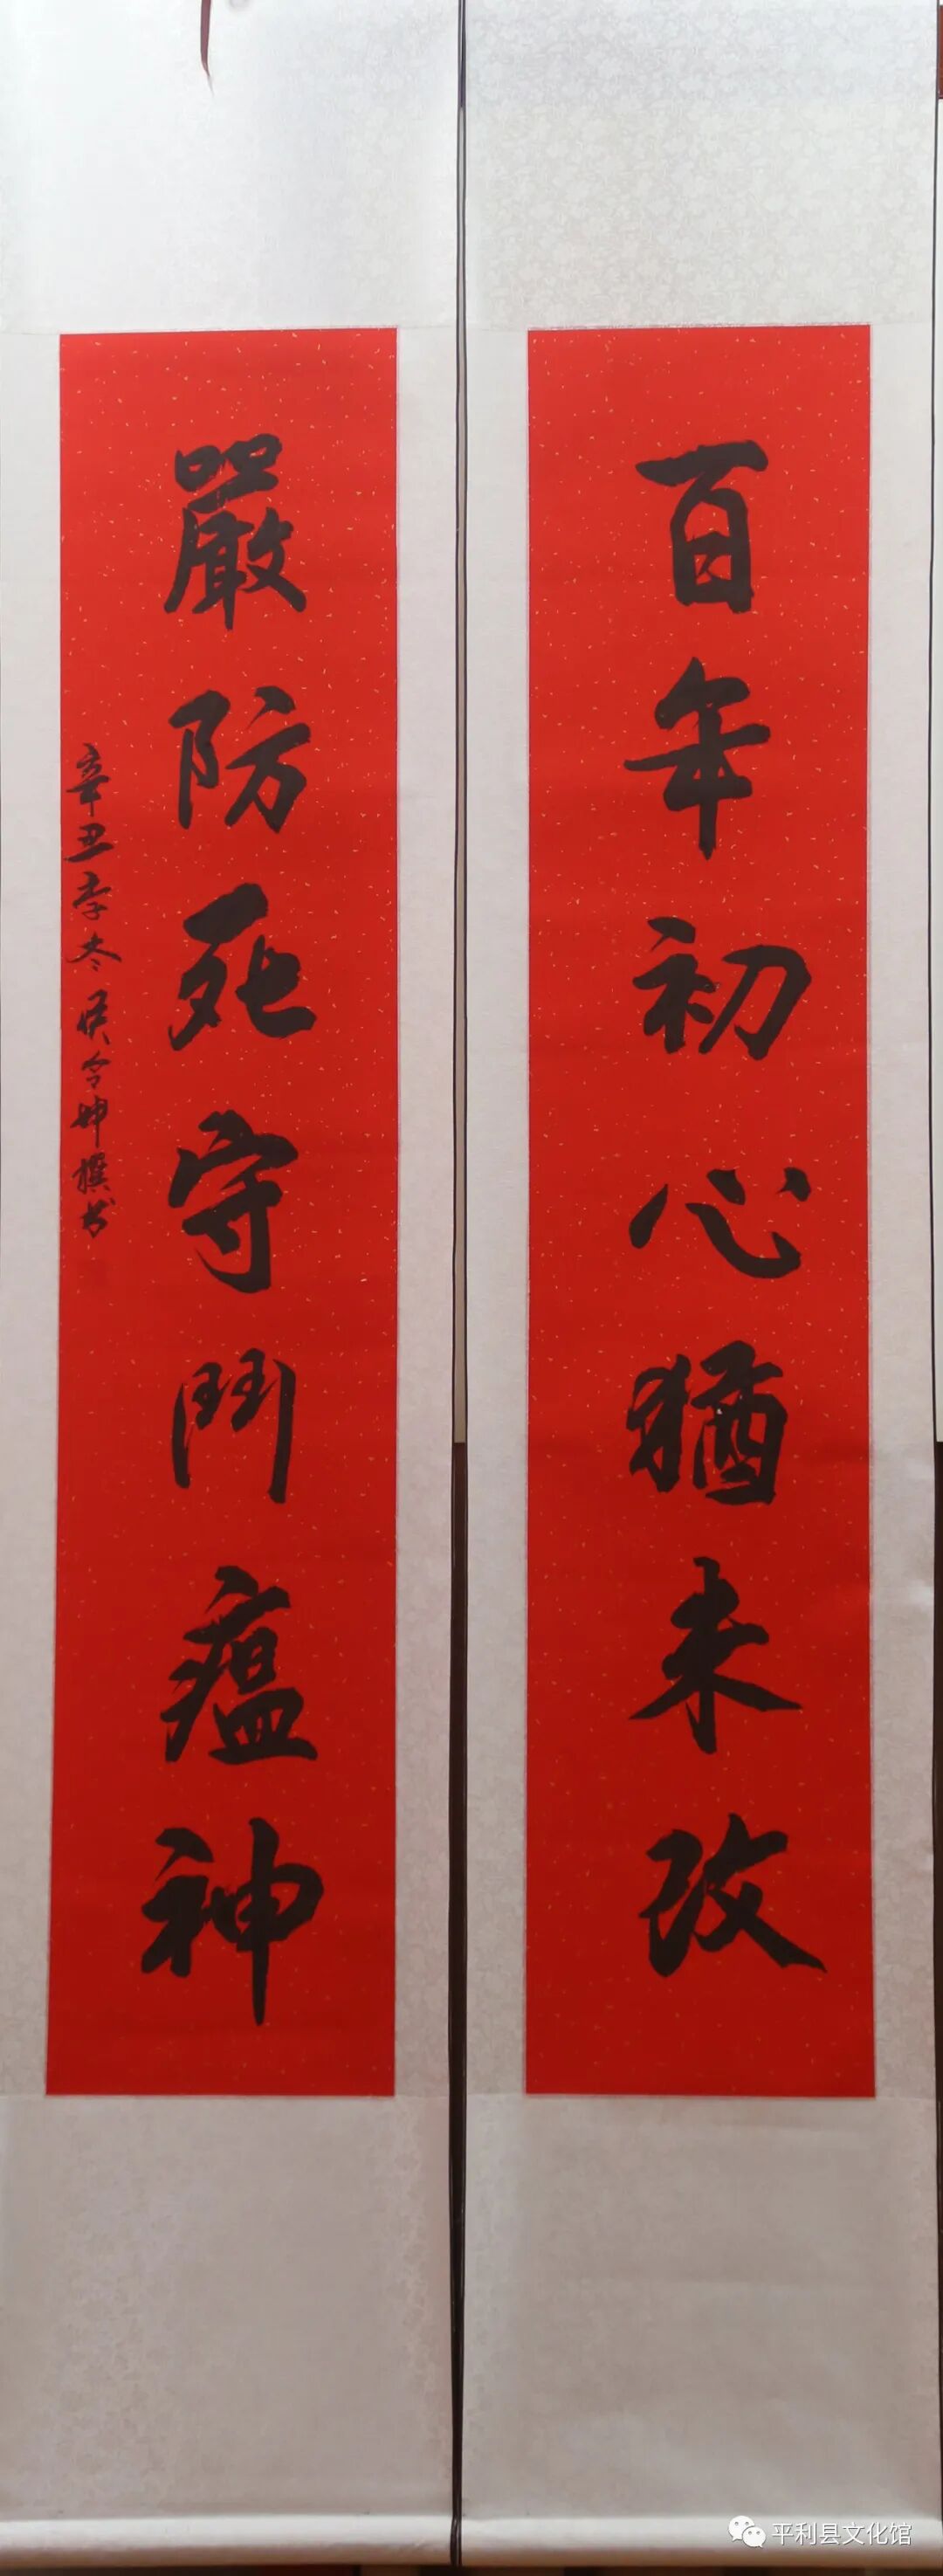 百年初心猶未改
嚴防死守鬥瘟神
辛丑季冬侯令坤撰书
平利县文化馆